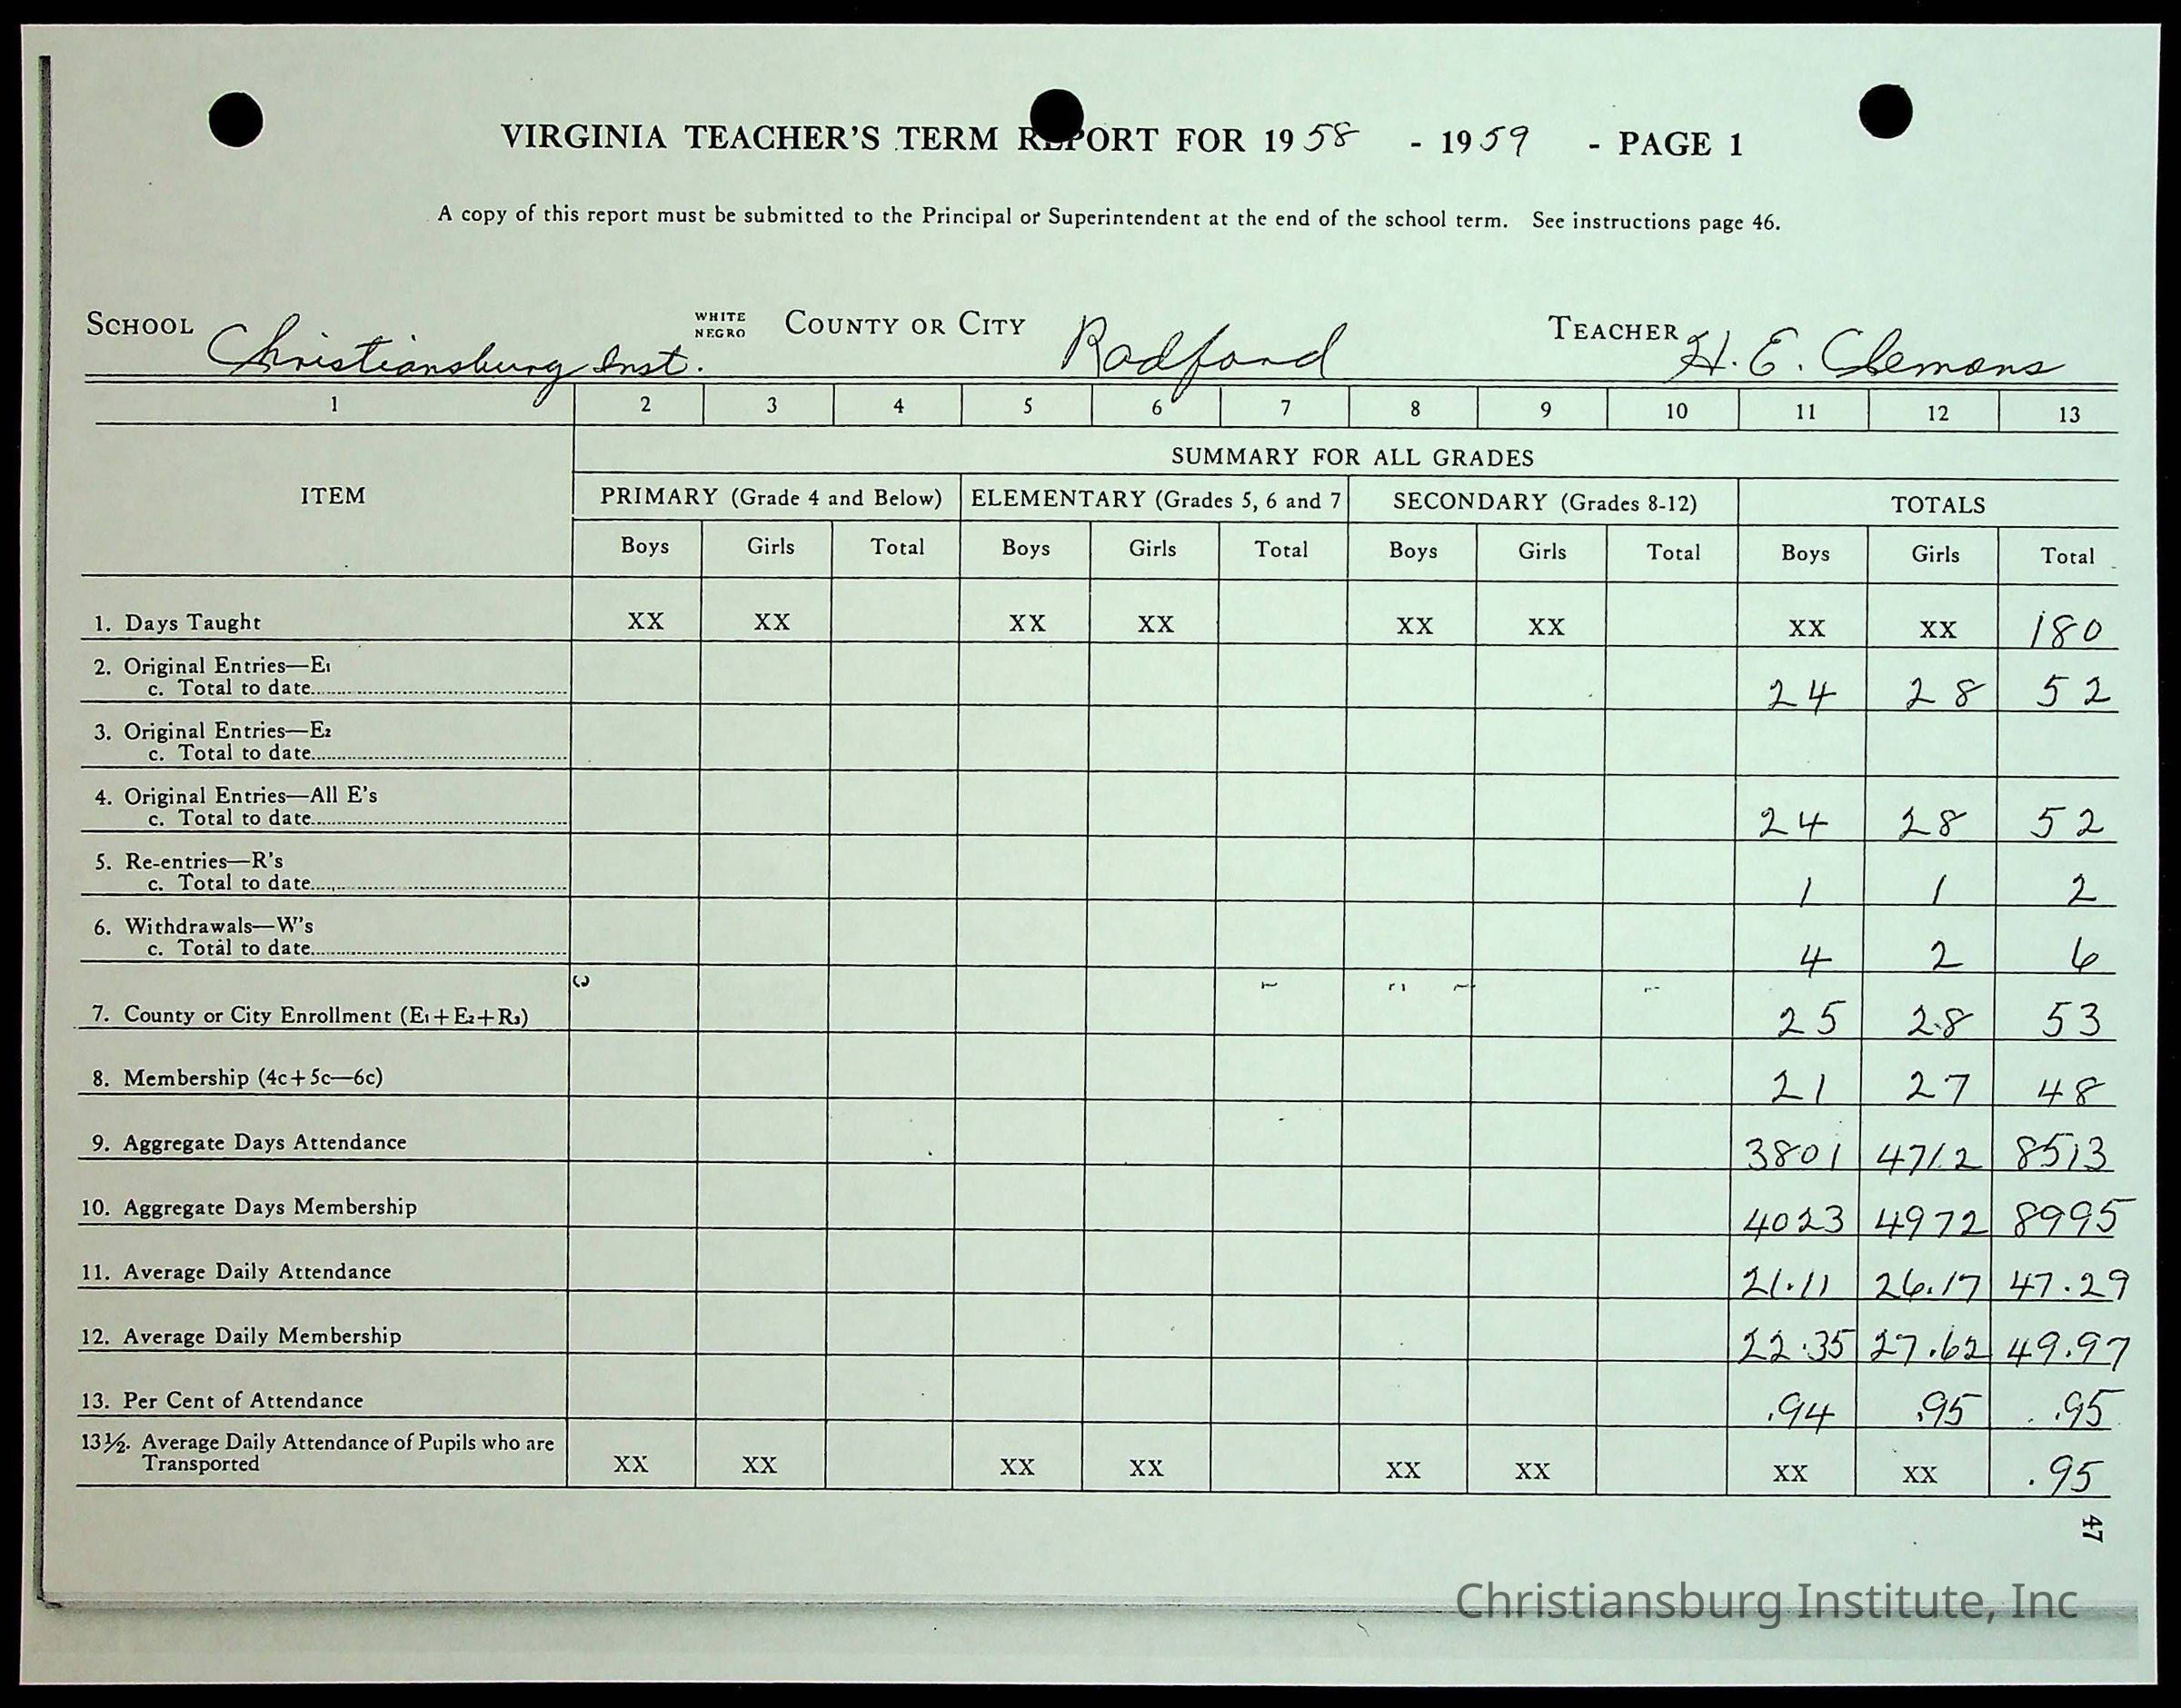 VIRGINIA TEACHER'S TERM REPORT FOR 1958 - 1959 - PAGE 1
A copy of this report must be submitted to the Principal or Superintendent at the end of the school term. See instructions page 46.
SCHOOL Christiansburg Inst. WHITE NEGRO COUNTY OR CITY Radford TEACHER H. E. Clemons
1 2 3 4 5 6 7 8 9 10 11 12 13
SUMMARY FOR ALL GRADES
ITEM PRIMARY (Grade 4 and Below) ELEMENTARY (Grades 5, 6 and 7 SECONDARY (Grades 8-12) TOTALS
Boys Girls Total Boys Girls Total Boys Girls Total Boys Girls Total
1. Days Taught XX XX XX XX XX XX XX XX 180
2. Original Entries—E1
c. Total to date 24 28 52
3. Original Entries—E2
c. Total to date
4. Original Entries—All E's
c. Total to date 24 28 52
5. Re-entries—R's
c. Total to date 1 1 2
6. Withdrawals—W's
c. Total to date 4 2 6
7. County or City Enrollment (E1+E2+R3) 25 28 53
8. Membership (4c+5c—6c) 21 27 48
9. Aggregate Days Attendance 3801 4712 8513
10. Aggregate Days Membership 4023 4972 8995
11. Average Daily Attendance 21.11 26.17 47.29
12. Average Daily Membership 22.35 27.62 49.97
13. Per Cent of Attendance .94 .95 .95
13½. Average Daily Attendance of Pupils who are
Transported XX XX XX XX XX XX XX XX .95
47
Christiansburg Institute, Inc